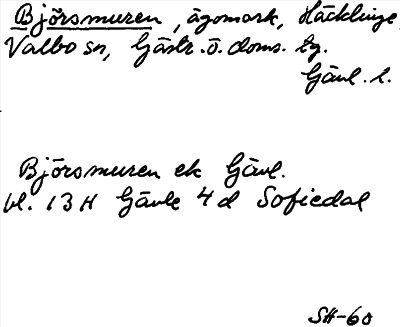 Björsmuren, ägomark, Häcklinge,
Valbo sn, Gästr. ö. doms. tg.
Gävl. l.
Björsmuren ek Gävl.
bl. 13 H Gävle 4 d Sofiedal
SH-60